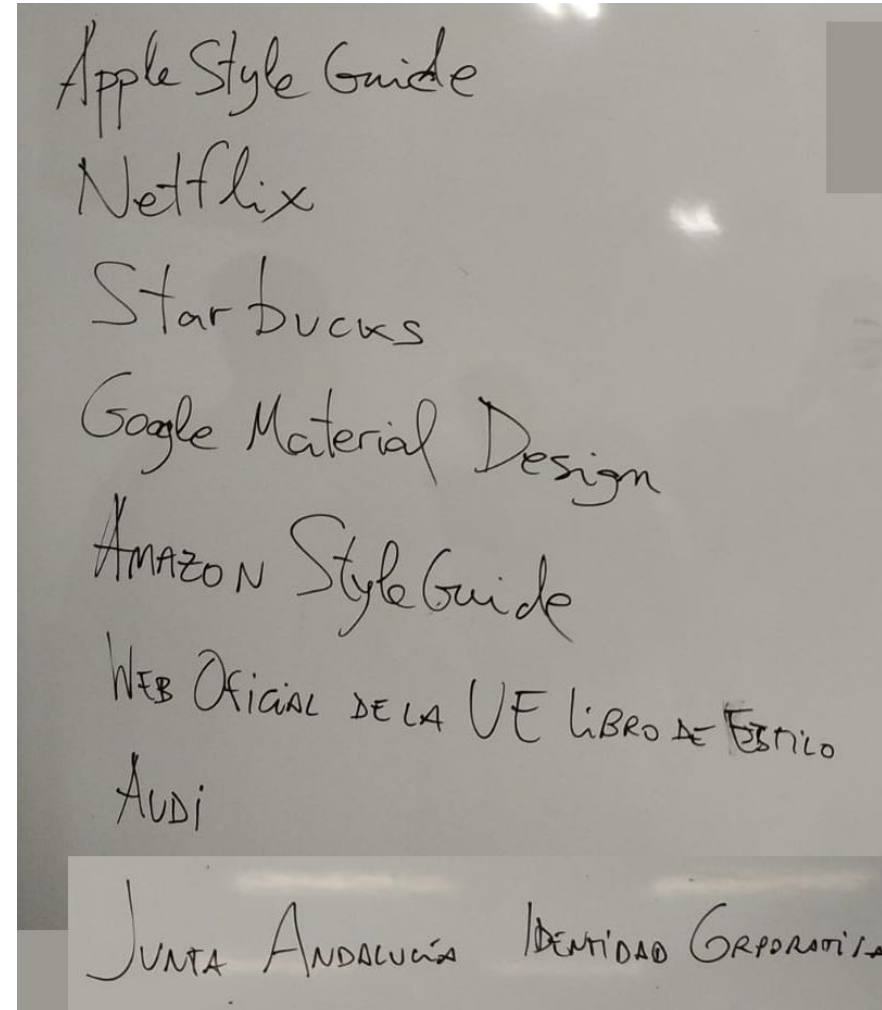 Apple Style Guide
Netflix
Starbucks
Google Material Design
AMAZON Style Guide
WEB OFICIAL DE LA UE LIBRO DE ESTILO
AUDI
JUNTA ANDALUCÍA IDENTIDAD CORPORATIVA